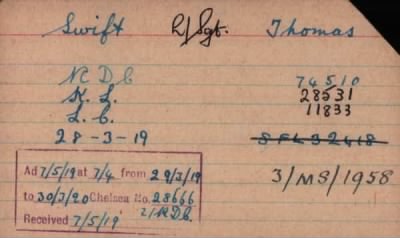 Swift L/Sgt. Thomas
N C D C 74510
K. L. 28531
L. C. 11833
28-3-19 SFL32418
3/MS/1958
Ad 7/5/19 at 7/4 from 29/3/19
to 30/3/20 Chelsea No. 28666
Received 7/5/19 2/N.D.C.